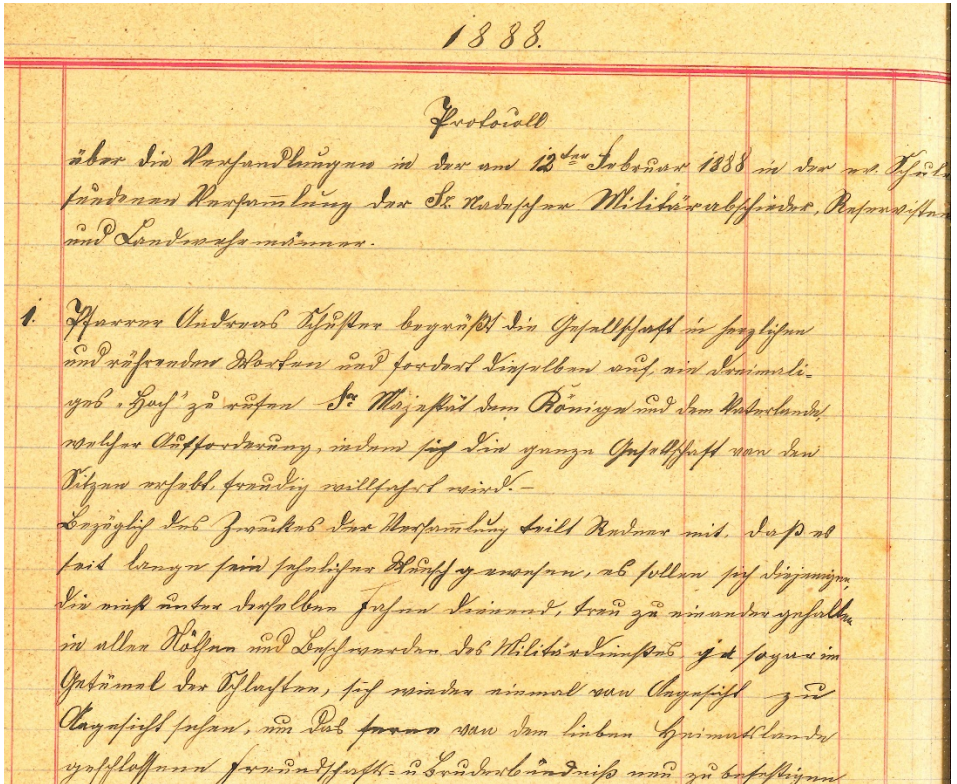 1888.
Protocoll
über die Verhandlungen in der am 12ten Februar 1888 in der ev. Schule
fundenen Versammlung der Gr. Nadescher Militärabschieder, Reservisten
und Landwehrmänner.
1. Pfarrer Andreas Schuster begrüßt die Gesellschaft in herzlichen
und rührenden Worten und fordert dieselben auf, ein dreimali-
ges „Hoch" zu rufen Sr Majestät dem Könige und dem Vaterlande,
welcher Aufforderung, indem sich die ganze Gesellschaft von den
Sitzen erhebt freudig willfahrt wird.-
Bezüglich des Zweckes der Versammlung teilt Redner mit, daß es
seit lange sein sehnlicher Wunsch gewesen, es sollen sich diejenigen,
die einst unter derselben Fahne dienend, treu zu einander gehalten
in allen Nöthen und Beschwerden des Militärdienstes ja sogar im
Getümel der Schlachten, sich wieder einmal von Angesicht zu
Angesicht sehen, um das ferne von dem lieben Heimatslande
geschlossene Freundschaft- u Bruderbündniß neu zu befestigen